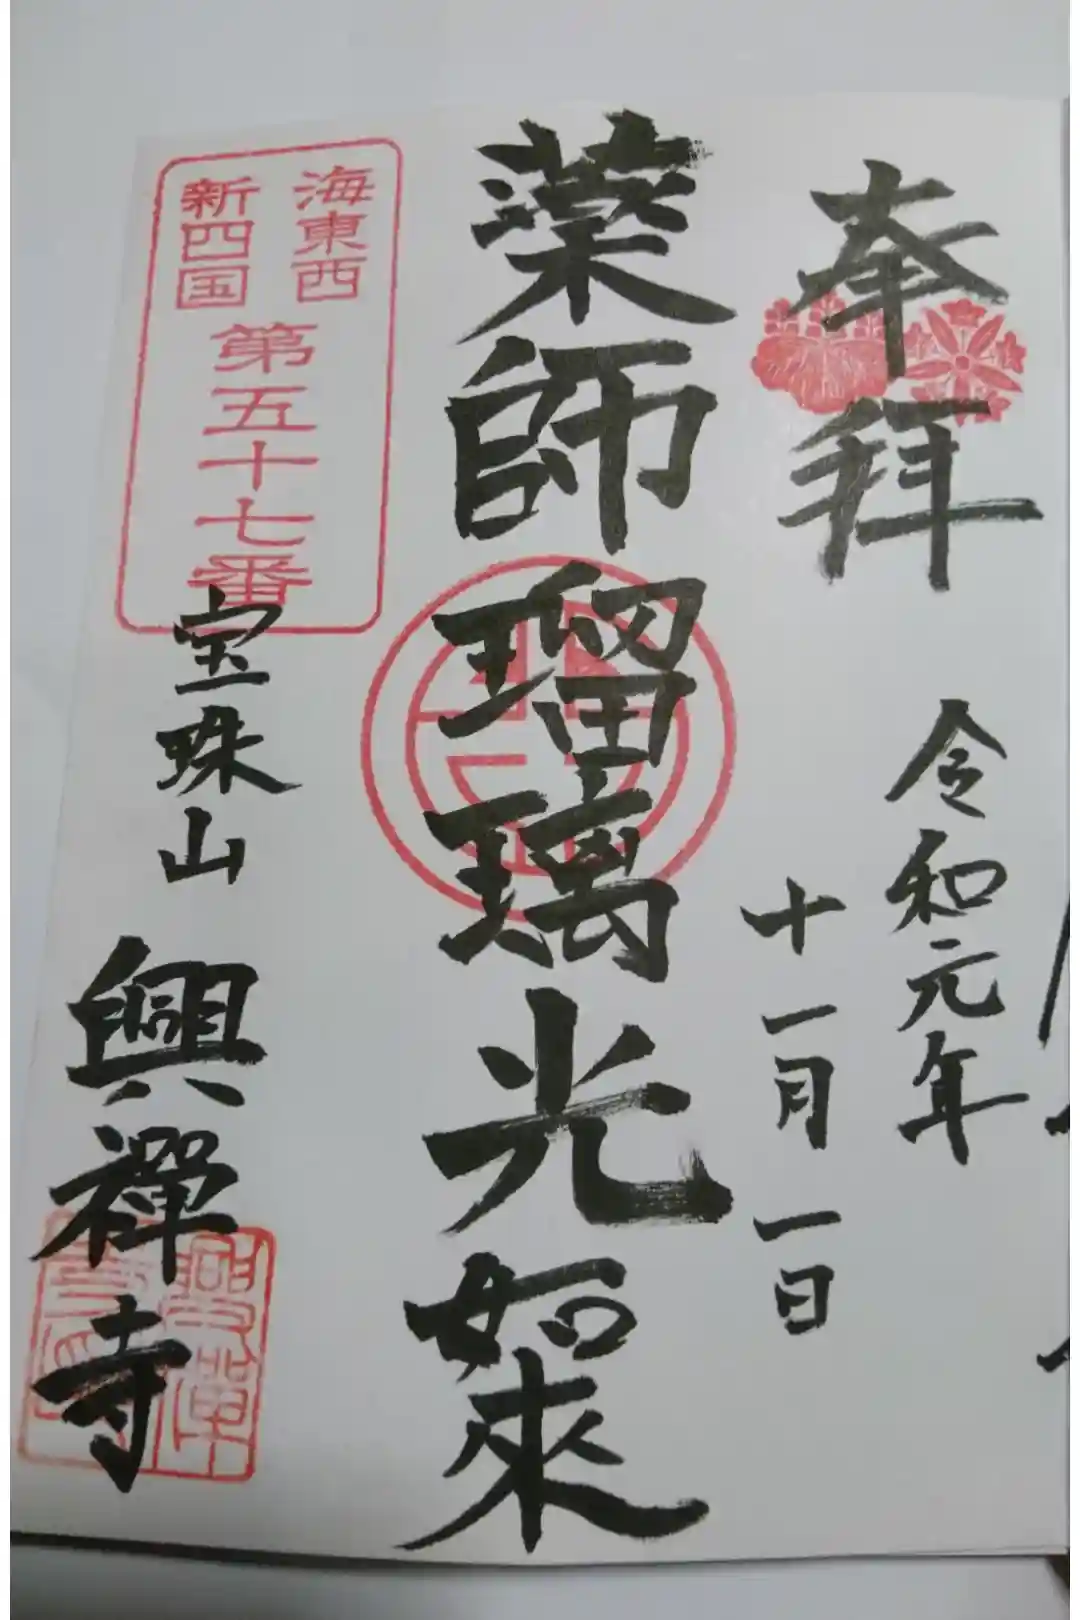 奉拝
令和元年
十一月一日
薬師瑠璃光如來
海東西
新四国
第五十七番
宝珠山 興禅寺